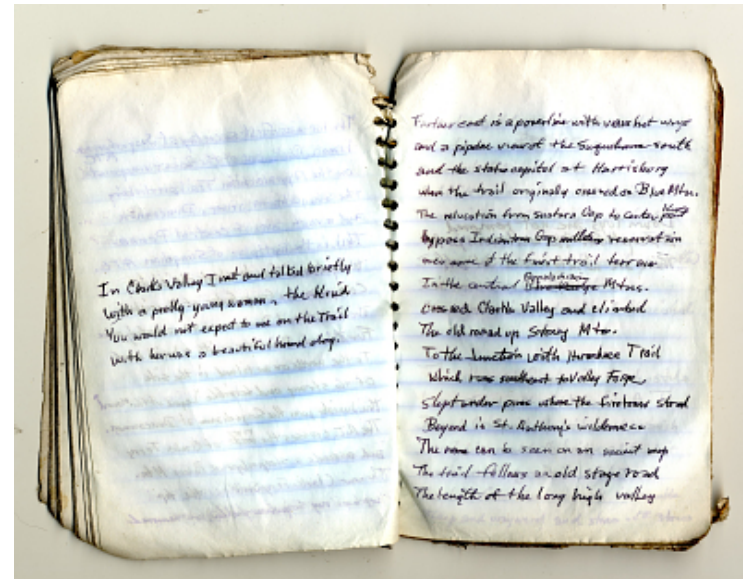 In Clarks Valley I met and talked briefly
with a pretty young woman, the kind
You would not expect to me on the Trail
with her was a beautiful hound dog.
Farther east is a powerline with views hot ways
and a pipeline view of the Susquehanna south
and the state capitol at Harrisburg
when the trail originally crossed on Blue Mtn.
The relocation from Swatara Gap to Center point
bypass Indiantown Gap military reservation
over some of the finest trail terrace
In the central Appalachian Mtns.
crossed Clarks Valley and climbed
The old road up Stony Mtn.
To the Junction with Horseshoe Trail
which runs southeast to Valley Forge,
slept under pines where the firetower stood
Beyond is St. Anthony's wilderness
The name can be seen on an ancient map
The trail follows an old stage road
The length of the long high valley